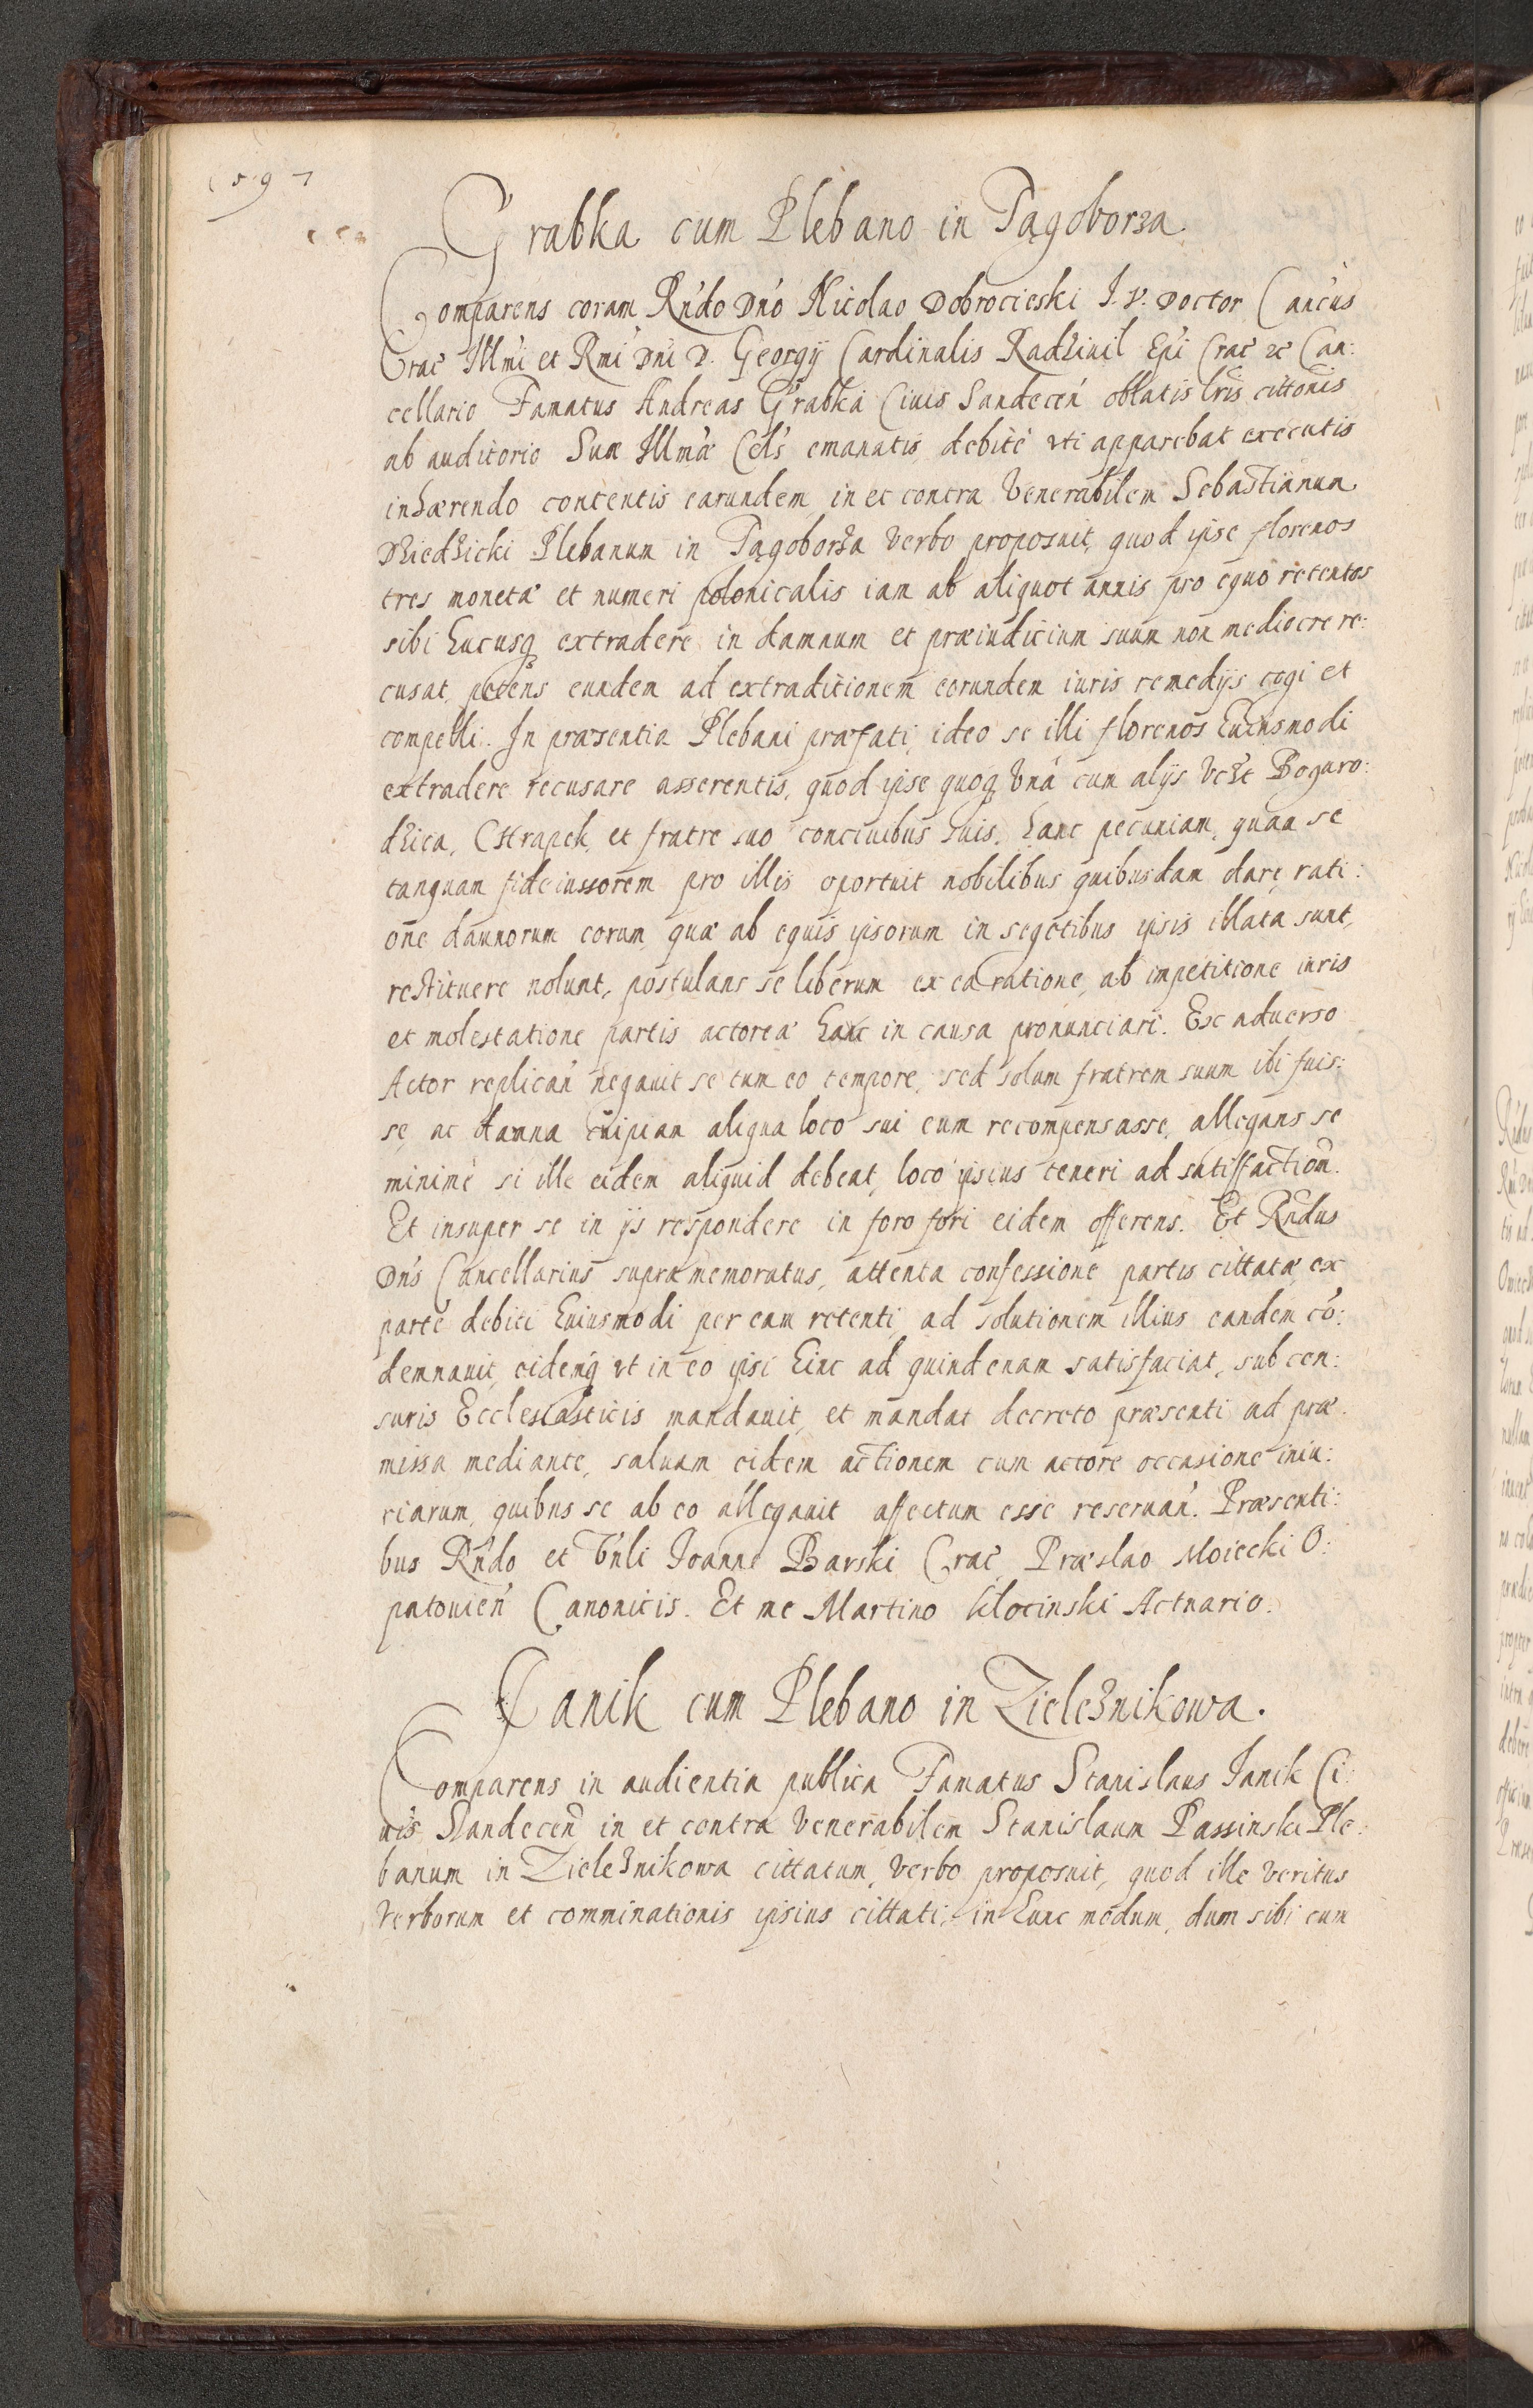 1597
Grabka cum Plebano in Tągoborza
Comparens coram Rńdo Dńo Nicolao Dobrocieski J. V. Doctor Cancús
Crac̀ Illmi et Rmi Dni D. Georgij Cardinalis Radziuil Epi Crac̀ &c Can:
cellario Famatus Andreas Grabka Ciuis Sandecen̄ oblatis lris cittonis
ab auditorio Suæ Illmæ Cels emanatis debite vti apparebat executis
inhærendo contentis earundem in et contra Venerabilem Sebastianum
Dziedzicki Plebanum in Tągoborza verbo proposuit, quod ipse florenos
tres monetæ et numeri polonicalis iam ab aliquot annis pro equo retentos
sibi hucusq extradere in damnum et præiudicium suum non mediocre re:
cusat, petens eundem ad extraditionem eorundem iuris remedijs cogi et
compelli. In præsentia Plebani præfati, ideo se illi florenos huiusmodi
extradere recusare asserentis, quod ipse quoq vna cum alijs vczt Boguro:
dzica, Ostrapek, et fratre suo conciuibus suis, hanc pecuniam, quam se
tanquam fideiussorem pro illis oportuit nobilibus quibusdam dare, rati:
one damnorum eorum, quæ ab equis ipsorum in segetibus ipsis illata sunt,
restituere nolunt, postulans se liberum ex ea ratione, ab impetitione iuris
et molestatione partis actoreæ hanc in causa pronunciari. Ex aduerso
Actor replicań negauit se tum eo tempore, sed solum fratrem suum ibi fuis:
se, ac damna cuipiam aliqua loco sui eum recompensasse, allegans se
minime si ille eidem aliquid debeat, loco ipsius teneri ad satisfaction̄.
Et insuper se in ijs respondere in foro fori eidem offerens. Et Rńdus
Dńs Cancellarius supra memoratus, attenta confessione partis cittatæ, ex
parte debiti huiusmodi per eam retenti, ad solutionem illius eandem cō:
demnauit, eidemq vt in eo ipsi hinc ad quindenam satisfaciat, sub cen:
suris Ecclesiasticis mandauit, et mandat decreto præsenti ad præ:
missa mediante, saluam eidem actionem cum actore occasione iniu:
riarum, quibus se ab eo allegauit affectum esse reseruań. Præsenti:
bus Rńdo et Vńli Joanne Barski Crac̀, Præslao Moiecki O:
patouień Canonicis. Et me Martino Klocinski Actuario.
Janik cum Plebano in Zieleznikowa.
Comparens in audientia publica Famatus Stanislaus Janik Ci:
uis Sandecen̄ in et contra Venerabilem Stanislaum Passinski Ple:
banum in Zieleznikowa cittatum, verbo proposuit, quod ille veritus
verborum et comminationis ipsius cittati, in hunc modum, dum sibi cum